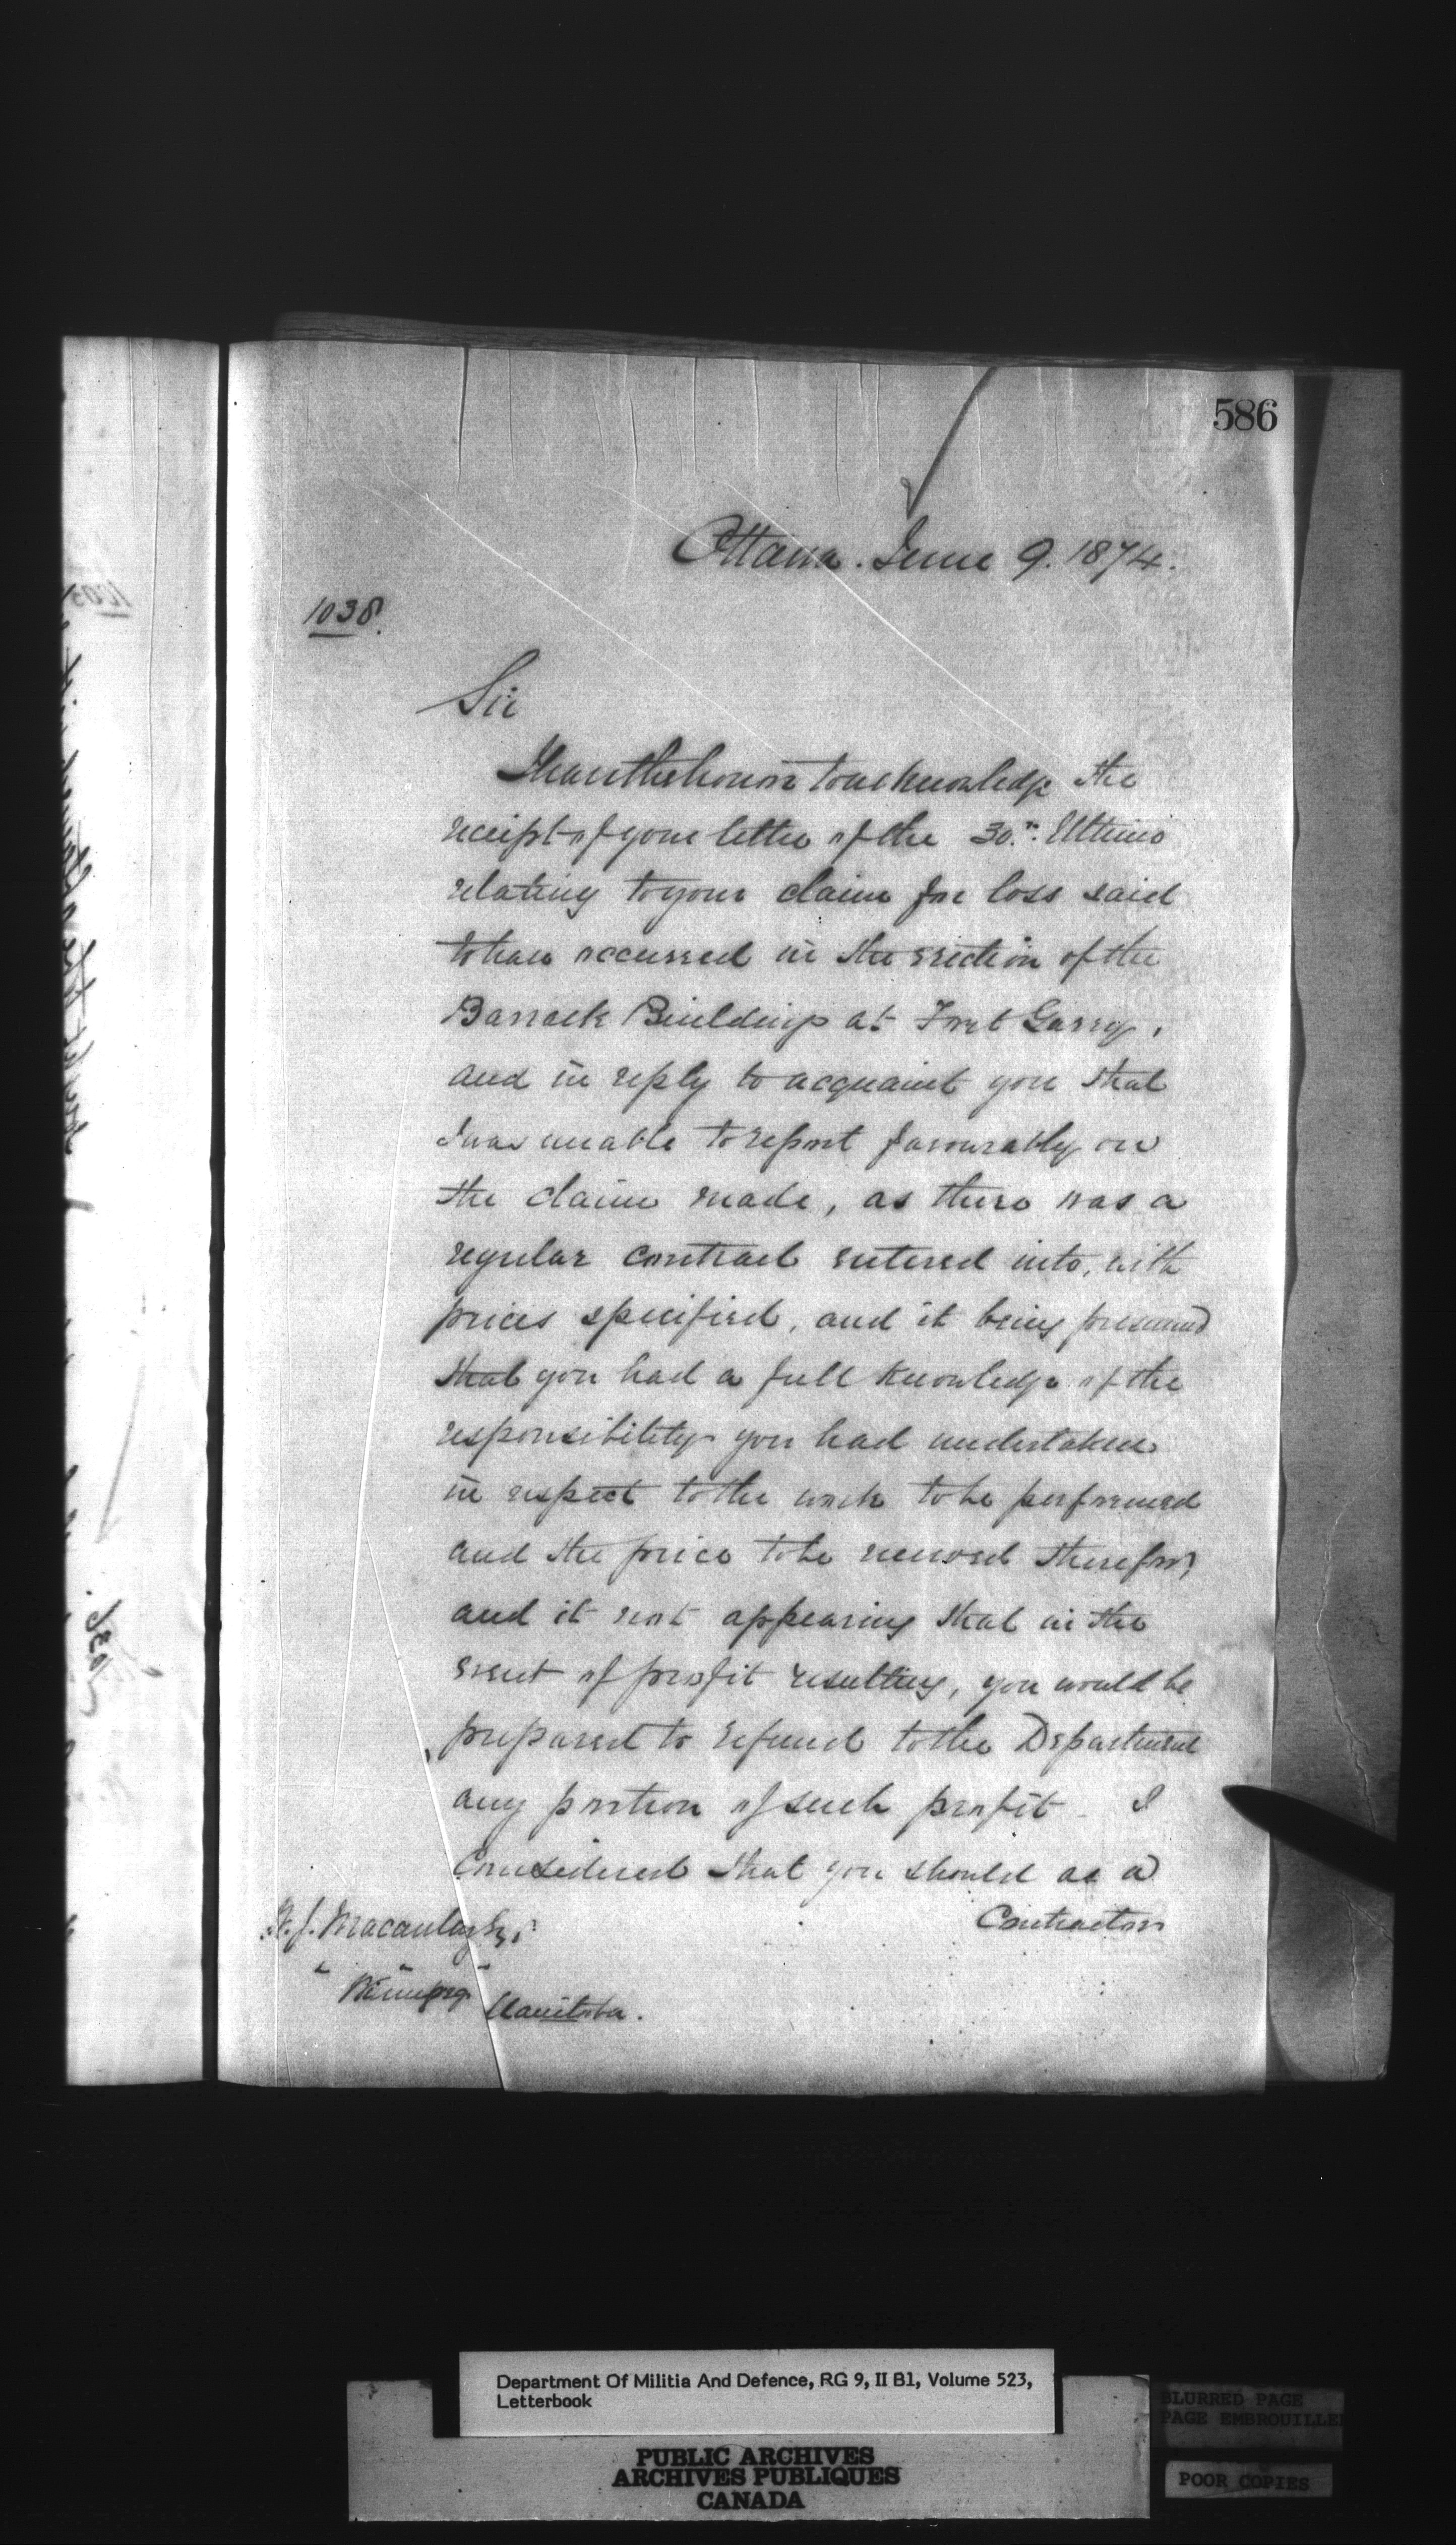 586
Ottawa. June 9. 1874.
1038.
Sir
I have the honor to acknowledge the
receipt of your letter of the 30th. Ultimo
relating to your claim for loss said
to have occurred in the erection of the
Barrack Buildings at Fort Garry,
and in reply to acquaint you that
I was unable to report favourably on
the claim made, as there was a
regular contract entered into, with
prices specified, and it being presumed
that you had a full knowledge of the
responsibility you had undertaken
in respect to the work to be performed
and the price to be received therefor,
and it not appearing that in the
event of profit resulting, you would be
prepared to refund to the Department
any portion of such profit - I
Considered that you should as a
Contractor
J. Macaulay Esq.
Winnipeg
Manitoba.
1038.
Department Of Militia And Defence, RG 9, II B1, Volume 523,
Letterbook
PUBLIC ARCHIVES
ARCHIVES PUBLIQUES
CANADA
BLURRED PAGE
PAGE EMBROUILLE
POOR COPIES